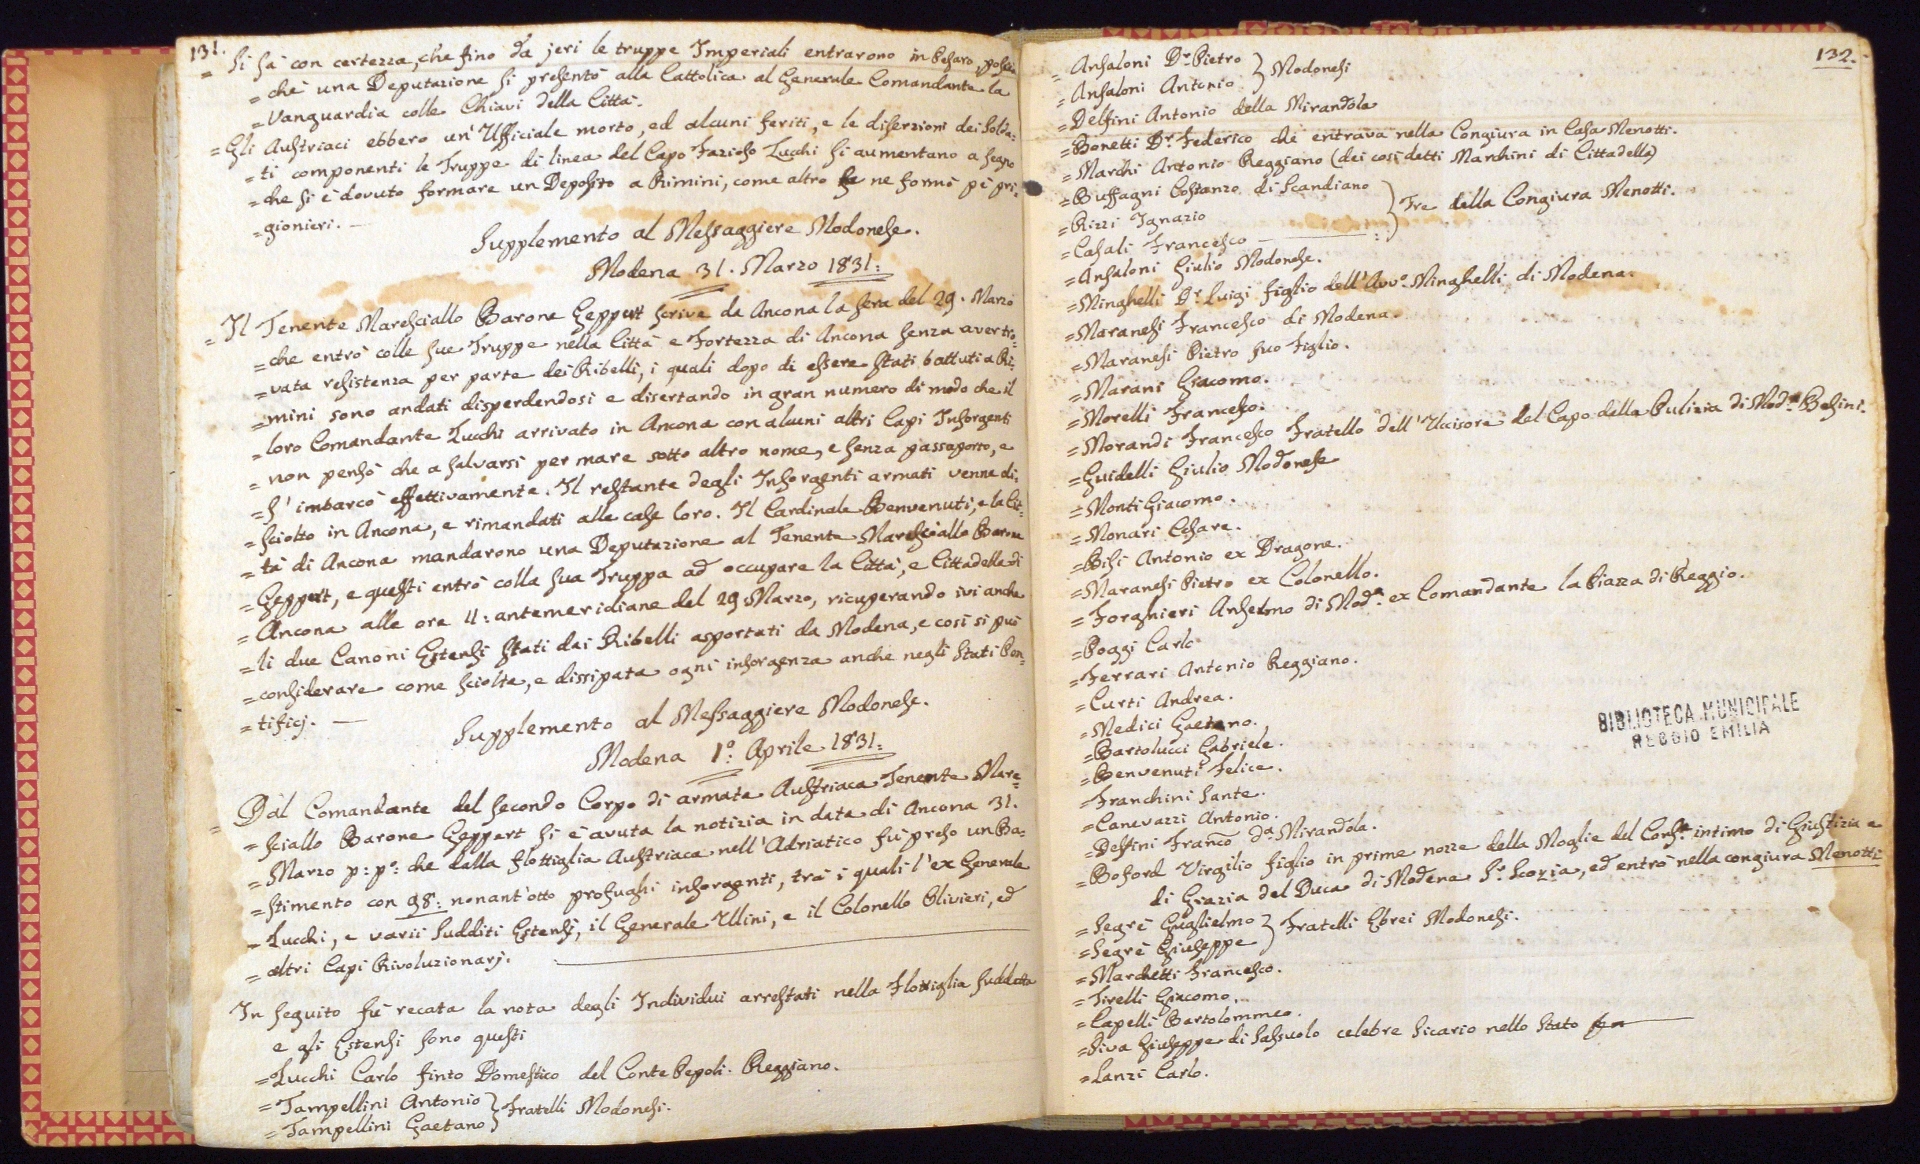 131.
Si sà con certezza, che fino da jeri le truppe Imperiali entrarono in Pesaro, poscia
= chè una Deputazione si presentò alla Cattolica al Generale Comandante la
= Vanguardia colle Chiavi della Città.
= Gli Austriaci ebbero un' Ufficiale morto, ed alcuni feriti, e le diserzioni dei Solda=
= ti componenti le Truppe di linea del Capo Fazioso Zucchi si aumentano a segno
= che si è dovuto formare un Deposito a Rimini, come altro se ne formò pei pri=
= gionieri. —
Supplemento al Messaggiere Modonese.
Modena 31. Marzo 1831:
= Il Tenente Maresciallo Barone Geppert scrive da Ancona la sera del 29. Marzo
= che entrò colle sue Truppe nella Città e Fortezza di Ancona senza aver tro=
= vata resistenza per parte dei Ribelli, i quali dopo di essere stati battuti a Ri=
= mini sono andati disperdendosi e disertando in gran numero di modo che il
= loro Comandante Zucchi arrivato in Ancona con alcuni altri Capi Insorgenti
= non pensò che a salvarsi per mare sotto altro nome, e senza passaporto, e
= s' imbarcò effettivamente. Il restante degli Insorgenti armati venne di=
= sciolto in Ancona, e rimandati alle case loro. Il Cardinale Benvenuti, e la Cit=
= tà di Ancona mandarono una Deputazione al Tenente Maresciallo Barone
= Geppert, e questi entrò colla sua Truppa ad occupare la Città, e Cittadella di
= Ancona alle ore 11: antemeridiane del 29 Marzo, ricuperando ivi anche
= li due Canoni Estensi stati dai Ribelli asportati da Modena, e così si può
= considerare come sciolta, e dissipata ogni insorgenza anche negli Stati Pon=
= tificj. —
Supplemento al Messaggiere Modonese.
Modena 1º: Aprile 1831:
= Dal Comandante del secondo Corpo di armata Austriaca Tenente Mare=
= sciallo Barone Geppert si è avuta la notizia in data di Ancona 31.
= Marzo p: pº: che dalla flottiglia Austriaca nell'Adriatico fù preso un Ba=
= stimento con 98: nonant'otto profughi insorgenti, trà i quali l'ex Generale
= Zucchi, e varii Sudditi Estensi, il Generale Ollini, e il Colonello Olivieri, ed
= altri Capi Rivoluzionarj.
In seguito fù recata la nota degli Individui arrestati nella Flottiglia suddetta
e gli Estensi sono questi
= Zucchi Carlo finto Domestico del Conte Pepoli. Reggiano.
= Tampellini Antonio
= Tampellini Gaetano } Fratelli Modonesi.
132.
= Ansaloni Dr. Pietro
= Ansaloni Antonio } Modonesi
= Delfini Antonio della Mirandola
= Bonetti Dr. Federico che entrava nella Congiura in Casa Menotti.
= Marchi Antonio Reggiano (dei così detti Marchini di Cittadella)
= Buffagni Costanzo di Scandiano
= Rizzi Ignazio
= Casali Francesco } Tre della Congiura Menotti.
= Ansaloni Giulio Modonese.
= Minghelli Dr. Luigi figlio dell'Avvº. Minghelli di Modena.
= Maranesi Francesco di Modena.
= Maranesi Pietro suo Figlio.
= Marani Giacomo.
= Morelli Francesco.
= Morandi Francesco Fratello dell'Uccisore del Capo della Pulizia di Modª. Besini.
= Guidelli Giulio Modonese
= Monti Giacomo.
= Monari Cesare.
= Bisi Antonio ex Dragone.
= Maranesi Pietro ex Colonello.
= Forghieri Anselmo di Modª: ex Comandante la Piazza di Reggio.
= Poggi Carlo
= Ferrari Antonio Reggiano.
= Curti Andrea.
= Medici Gaetano.
= Bartolucci Gabriele.
= Benvenuti Felice.
= Franchini Sante.
= Canevazzi Antonio.
= Delfini Franco dª. Mirandola.
= Boford Virgilio figlio in prime nozze della Moglie del Consr. intimo di Giustizia e
di Grazia del Duca di Modena Sr. Scozia, ed entrò nella congiura Menotti
= Segrè Guglielmo
= Segrè Giuseppe } Fratelli Ebrei Modonesi.
= Marchetti Francesco.
= Tirelli Giacomo.
= Capelli Bartolommeo.
= Piva Giuseppe di Sassuolo celebre Sicario nello Stato
= Lanzi Carlo.
BIBLIOTECA MUNICIPALE
REGGIO EMILIA